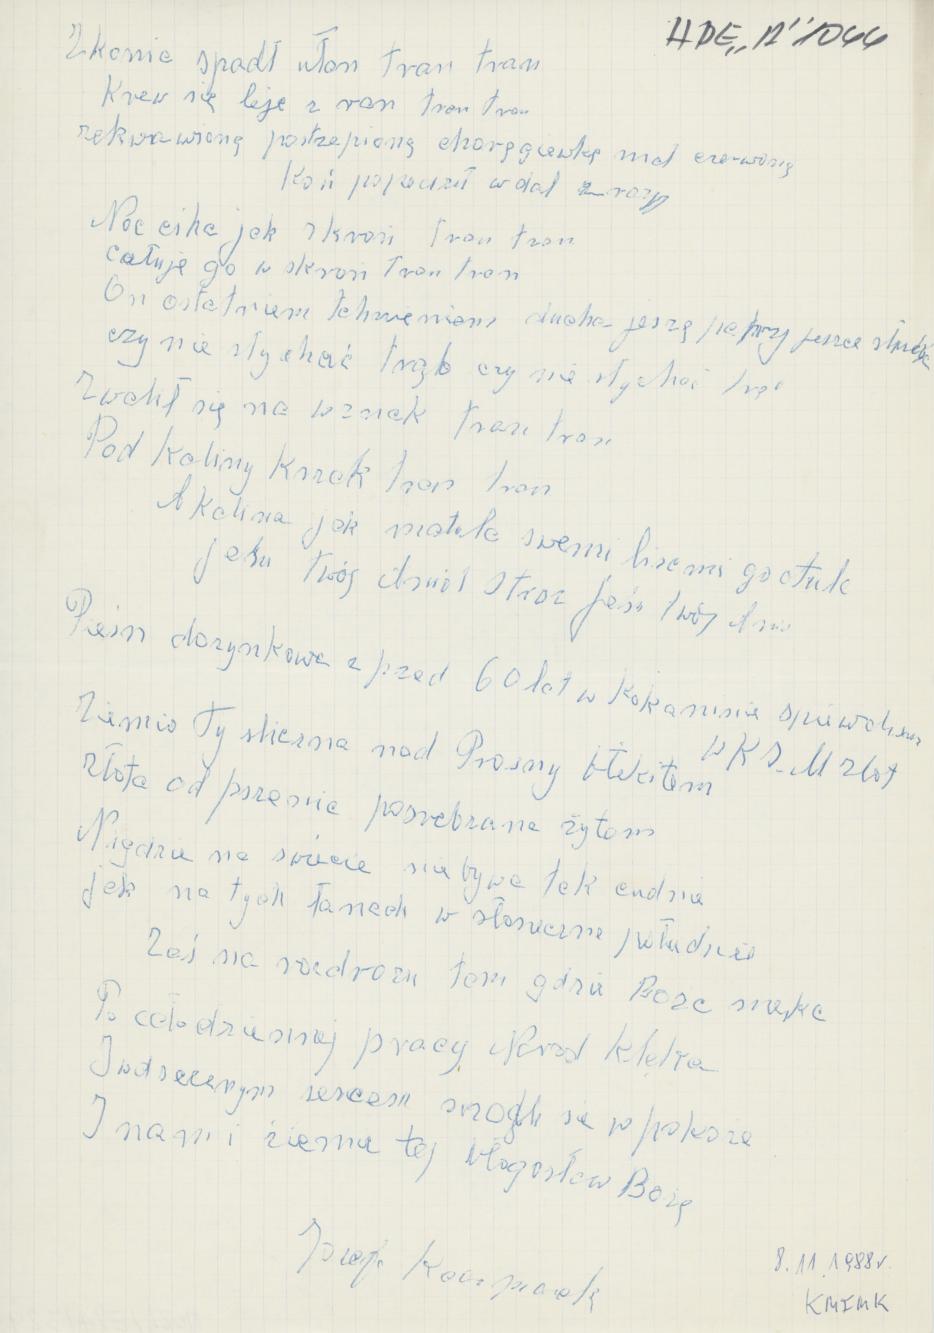 HDE„12"1044
Zkonia spadł ułan tran tran
Krew się leje z ran tran tran
zekwawioną postzepioną chorągiewkę miał czerwoną
Koń popędził w dal
Noc cicha jak zkroń tran tran
całuje go w skroń tran tran
On ostatniem tchnieniem ducha jeszę patrzy jesce słucha
czy nie słychać trąb czy nie słychać trą
Zwalił się na wznak tran tran
Pod Kaliny Krzak tran tran
A Kalina jak matula swemi liscmi go otula
Jaśu twój Anioł Stroz Jaśu twój Anio
Pieśn dozynkowa z przed 60 lat w Kokaninie spiewalismy
w K S. M Zlot
Ziemio Ty sliczna nad Prosny błekitem
Złota od pszenic posrebrana żytem
Nigdzie na swiecie nie bywa tak cudnie
jak na tych łanach w słoneczne południe
Zaś na rozdrozu tam gdzie Boza męka
Po całodziennej pracy Narod Klęka
I wdzecznym sercem modli sie w pokoze
I nam i ziemie tej błogosław Bozę
Józef Kacprzak
8.11.1988r.
KMIMK